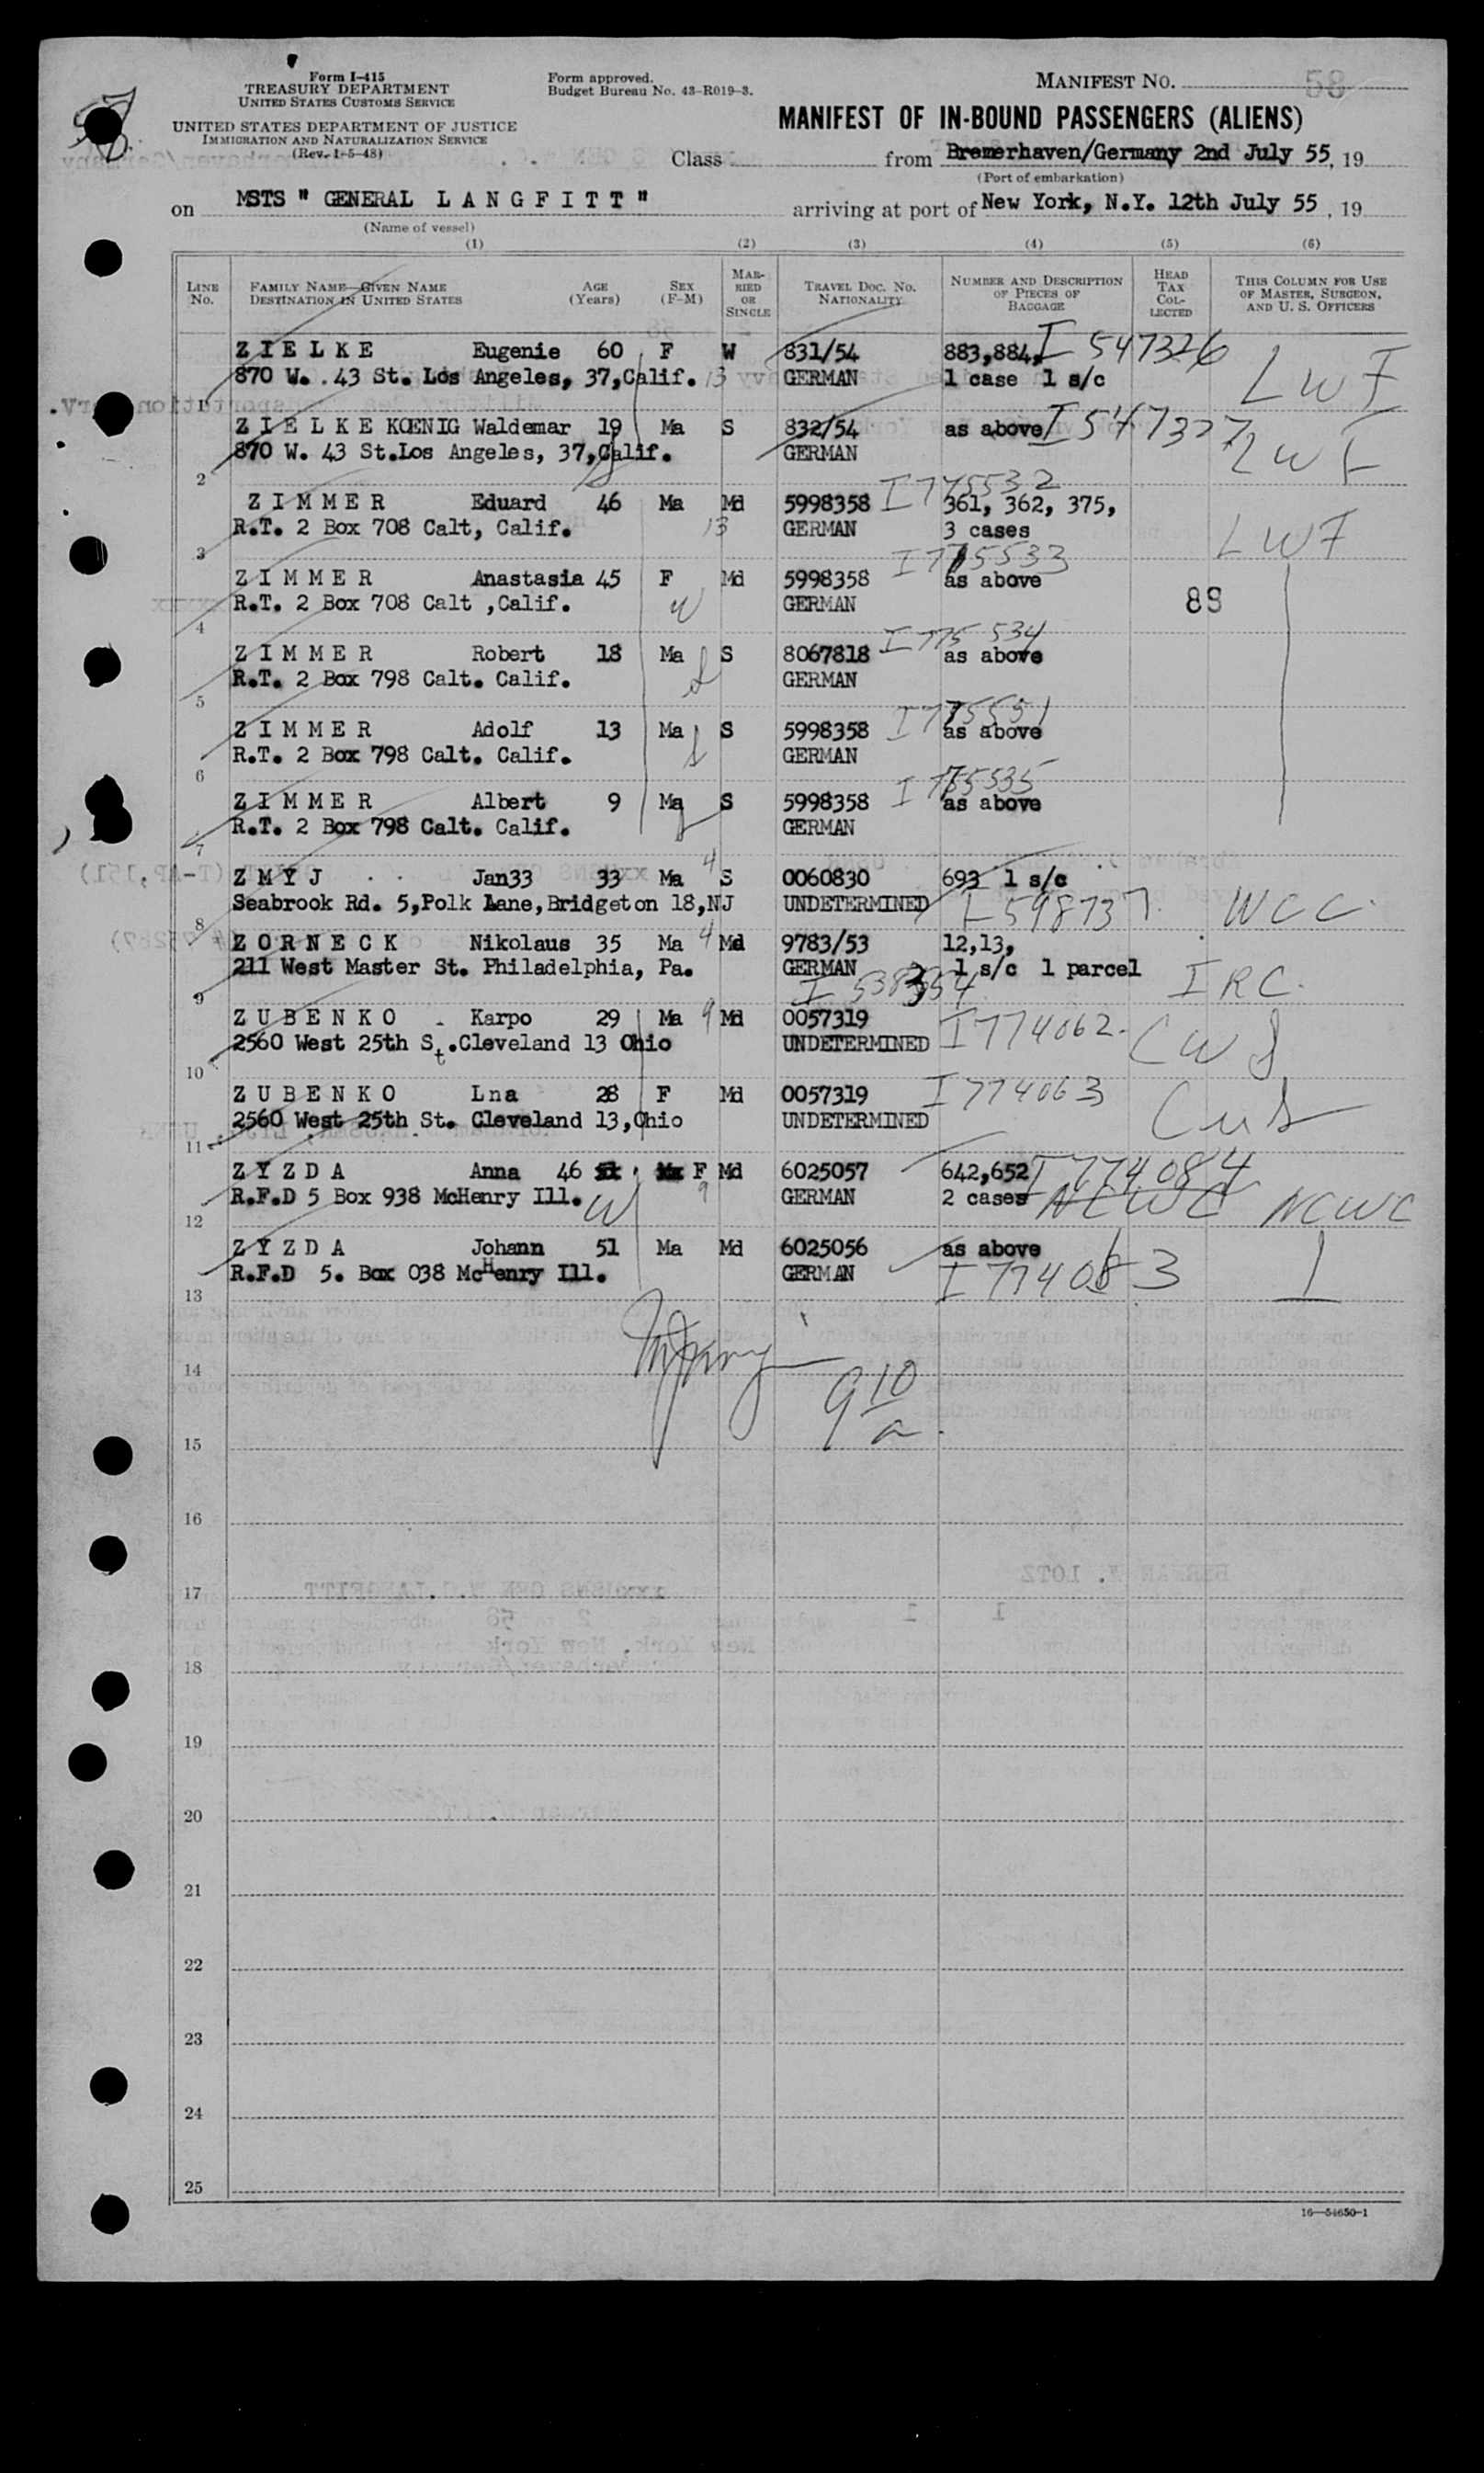 Form I-415
TREASURY DEPARTMENT
UNITED STATES CUSTOMS SERVICE
UNITED STATES DEPARTMENT OF JUSTICE
IMMIGRATION AND NATURALIZATION SERVICE
(Rev. 1-5-48)
Form approved.
Budget Bureau No. 43-R019-3.
MANIFEST NO. 58
MANIFEST OF IN-BOUND PASSENGERS (ALIENS)
Class from Bremerhaven/Germany 2nd July 55, 19
(Port of embarkation)
on MSTS " GENERAL L A N G F I T T " arriving at port of New York, N.Y. 12th July 55, 19
(Name of vessel)
(1) (2) (3) (4) (5) (6)
LINE No. FAMILY NAME—GIVEN NAME DESTINATION IN UNITED STATES AGE (Years) SEX (F-M) MARRIED OR SINGLE TRAVEL DOC. NO. NATIONALITY NUMBER AND DESCRIPTION OF PIECES OF BAGGAGE HEAD TAX COLLECTED THIS COLUMN FOR USE OF MASTER, SURGEON, AND U. S. OFFICERS
Z I E L K E Eugenie 60 F W 831/54 883,884, I 547326 LWF
1 870 W. 43 St. Los Angeles, 37,Calif. 13 GERMAN 1 case 1 s/c
Z I E L K E KOENIG Waldemar 19 Ma S 832/54 as above I 547327 LWF
2 870 W. 43 St.Los Angeles, 37,Calif. GERMAN
Z I M M E R Eduard 46 Ma Md 5998358 I 775532 361, 362, 375,
3 R.T. 2 Box 708 Calt, Calif. 13 GERMAN 3 cases LWF
Z I M M E R Anastasia 45 F Md 5998358 I 775533 as above
4 R.T. 2 Box 708 Calt ,Calif. W GERMAN 88
Z I M M E R Robert 18 Ma S 8067818 I 775534 as above
5 R.T. 2 Box 798 Calt. Calif. GERMAN
Z I M M E R Adolf 13 Ma S 5998358 I 775551 as above
6 R.T. 2 Box 798 Calt. Calif. GERMAN
Z I M M E R Albert 9 Ma S 5998358 I 775535 as above
7 R.T. 2 Box 798 Calt. Calif. GERMAN
Z M Y J Jan33 33 Ma 4 S 0060830 693 1 s/c
8 Seabrook Rd. 5,Polk Lane,Bridgeton 18,NJ UNDETERMINED I 598737 WCC
Z O R N E C K Nikolaus 35 Ma 4 Md 9783/53 12,13,
9 211 West Master St. Philadelphia, Pa. GERMAN 1 s/c 1 parcel IRC.
Z U B E N K O Karpo 29 Ma 9 Md 0057319 I 774062. CWS
10 2560 West 25th St.Cleveland 13 Ohio UNDETERMINED
Z U B E N K O Lna 28 F Md 0057319 I 774063 CWS
11 2560 West 25th St. Cleveland 13,Ohio UNDETERMINED
Z Y Z D A Anna 46 F Md 6025057 642,652 I 774084
12 R.F.D 5 Box 938 McHenry Ill. W 9 GERMAN 2 cases NCWC NCWC
Z Y Z D A Johann 51 Ma Md 6025056 as above
13 R.F.D 5. Box 038 McHenry Ill. GERMAN I 774083
14
9 10 a
15
16
17
18
19
20
21
22
23
24
25
16—54650-1